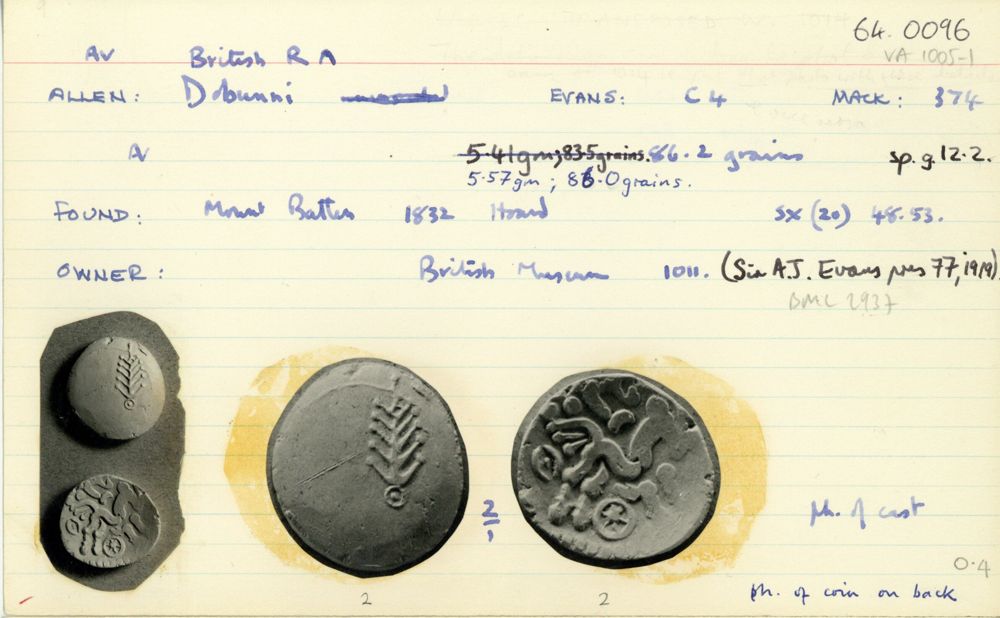 64.0096
AV British R A VA 1005-1
ALLEN: Dobunni EVANS: C 4 MACK: 374
AV 5.41gm; 83.5grains. 86.2 grains sp. g. 12.2.
5.57gm ; 86.0grains.
FOUND: Mount Batten 1832 Hoard SX (20) 48.53.
OWNER: British Museum 1011. (Sir A.J. Evans pres 77, 1919)
BMC 2937
2/1
ph. of cast
0.4
2 2
ph. of coin on back